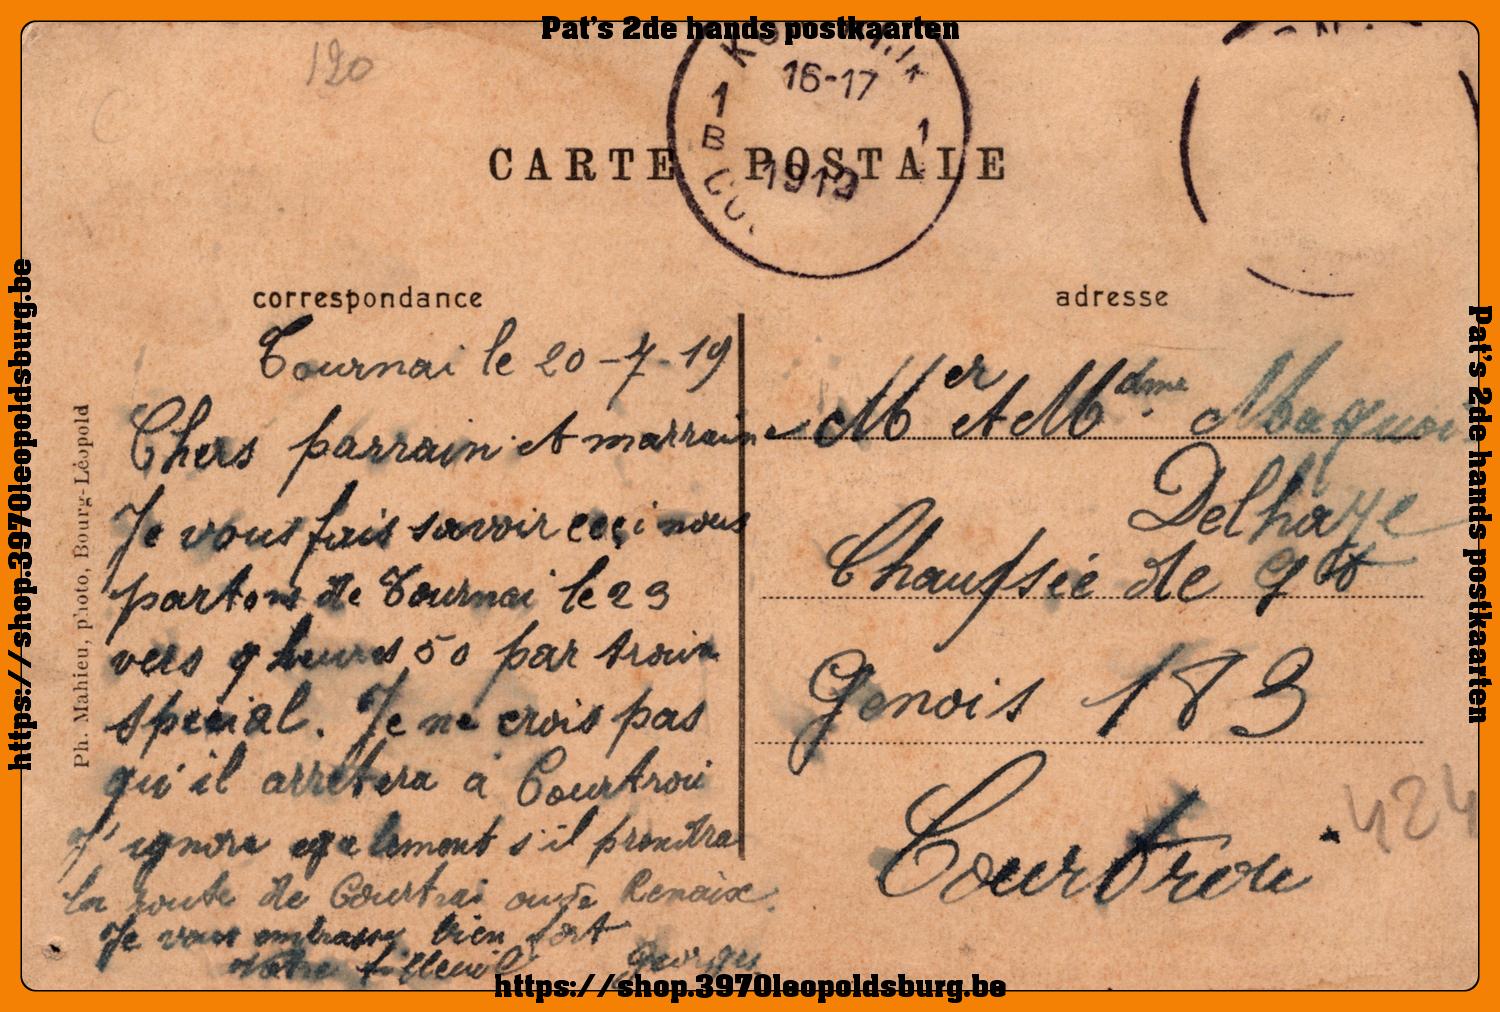 Pat's 2de hands postkaarten
120
16-17
1 1
B
1919
CARTE POSTALE
correspondance
adresse
Tournai le 20-7-19
Chers parrain et marraine
Je vous fais savoir ceçi nous
partons de Tournai le 23
vers 9 heures 50 par train
special. Je ne crois pas
qu'il arrêtera à Courtrai
J'ignore egalement s'il prendra
la route de Courtrai ou de Renaix.
Je vous embrasse bien fort
Votre filleuil Georges
Mer et Mdme Maquoi
Delhaye
Chaussée de gd
Genois 183
Courtrai
424
Ph. Mahieu, photo, Bourg-Léopold
https://shop.3970leopoldsburg.be
Pat's 2de hands postkaarten
https://shop.3970leopoldsburg.be